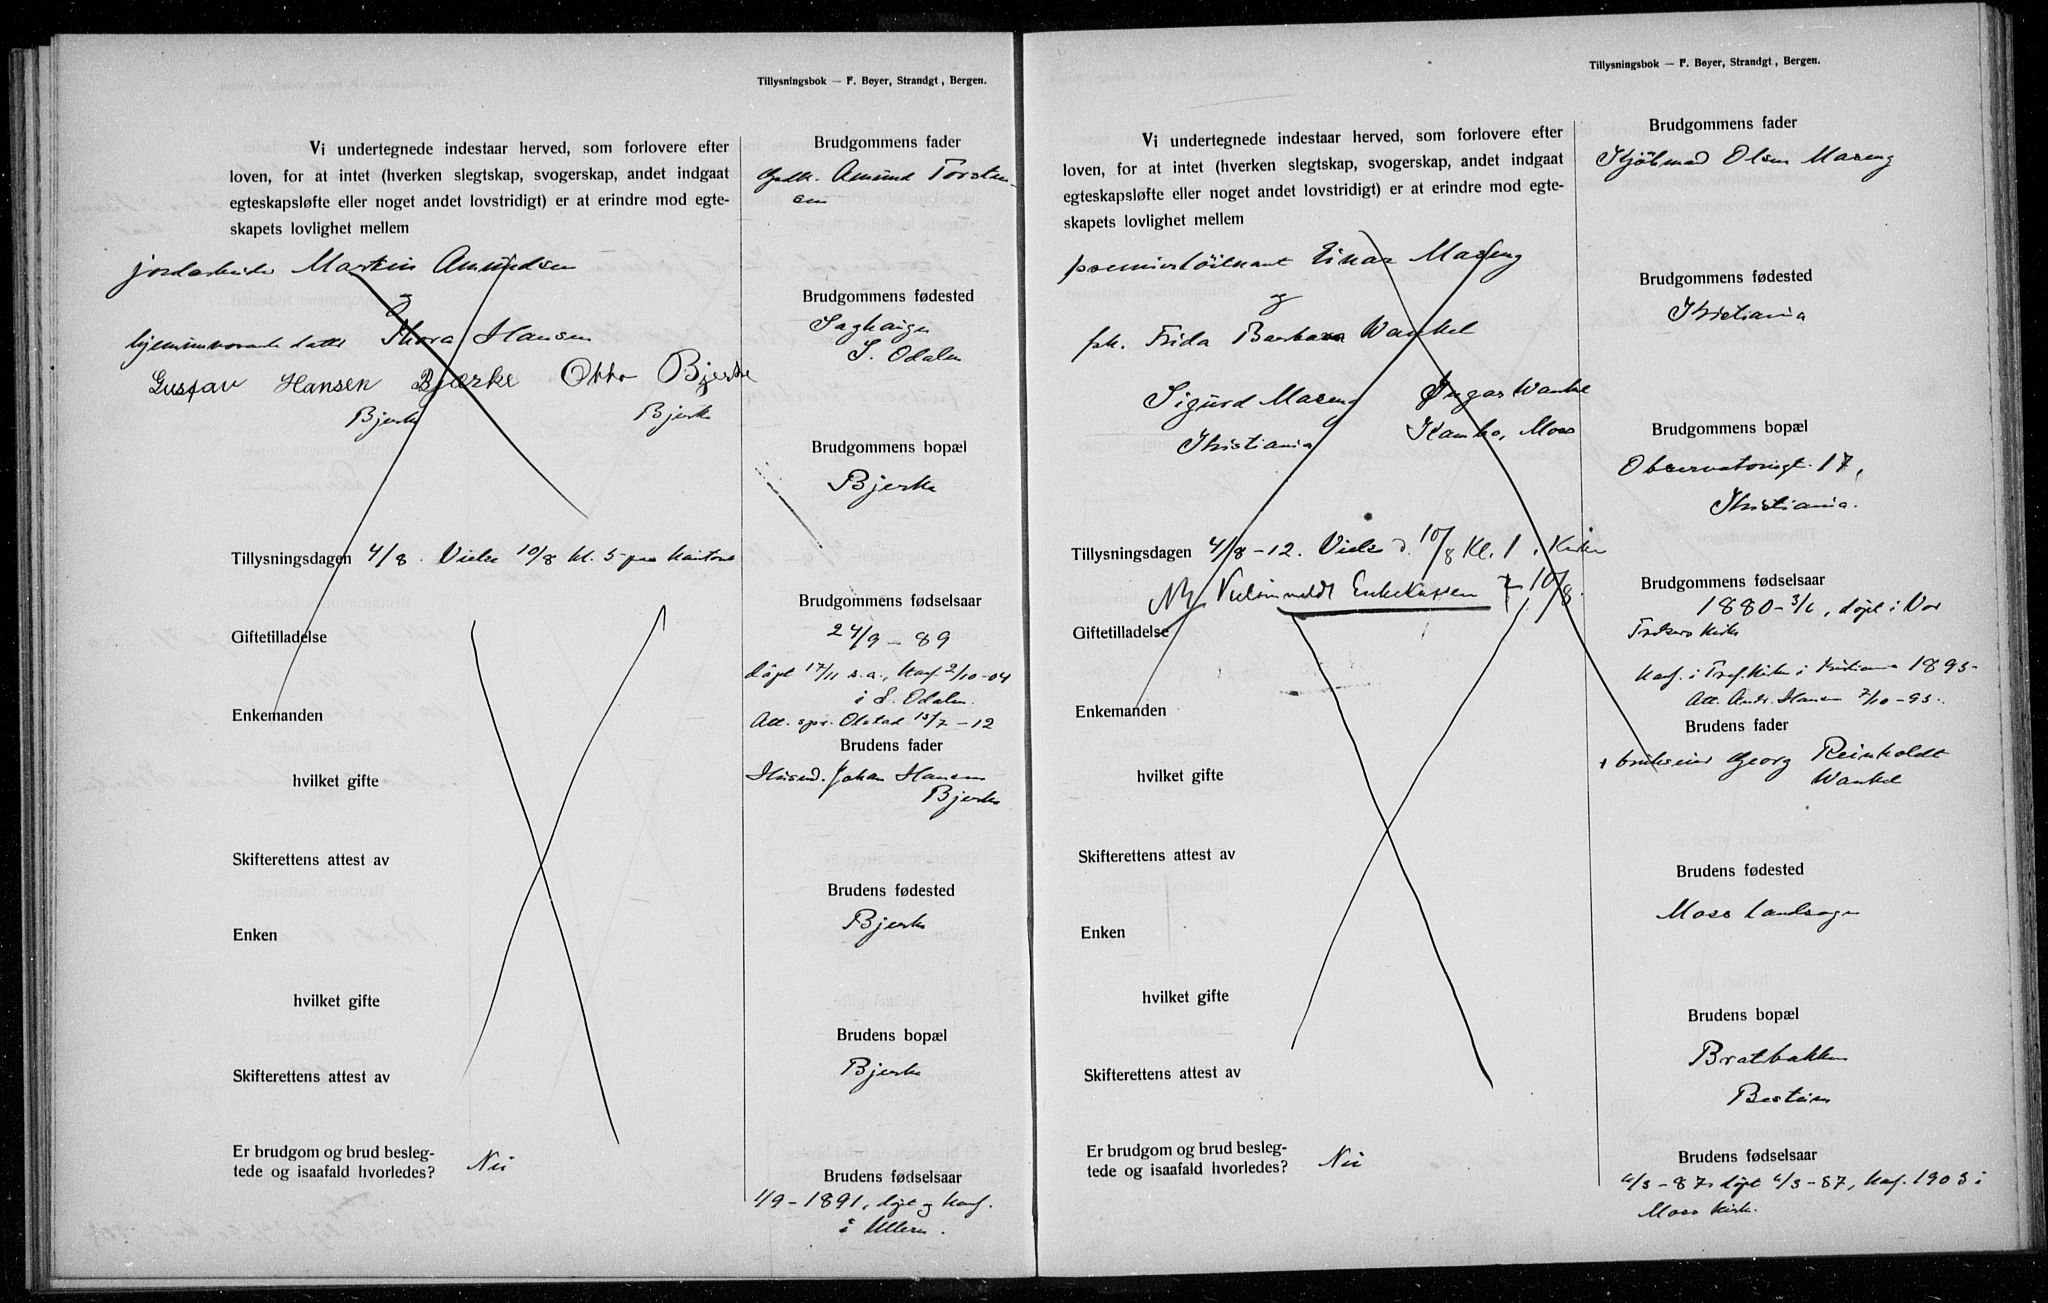 Tillysningsbok — F. Beyer, Strandgt, Bergen.
Vi undertegnede indestaar herved, som forlovere efter
loven, for at intet (hverken slegtskap, svogerskap, andet indgaat
egteskapsløfte eller noget andet lovstridigt) er at erindre mod egte-
skapets lovlighet mellem
jordarbeider Martin Amundsen
og
hjemmeværende datter Thora Hansen
Gustav Hansen Bjerke Otto Bjerke
Bjerke Bjerke
Tillysningsdagen 4/8. Vielse 10/8 kl. 5 paa kontoret
Giftetilladelse
Enkemanden
hvilket gifte
Skifterettens attest av
Enken
hvilket gifte
Skifterettens attest av
Er brudgom og brud besleg-
tede og isaafald hvorledes? Nei
Brudgommens fader
Amund Torsten-
sen
Brudgommens fødested
Saghaugen
S. Odalen
Brudgommens bopæl
Bjerke
Brudgommens fødselsaar
24/9 - 89
døpt 17/11 s.a., konf. 2/10-04
i S. Odalen.
Att. spr. Olstad 15/7 - 12
Brudens fader
Husmd. Johan Hansen
Bjerke
Brudens fødested
Bjerke
Brudens bopæl
Bjerke
Brudens fødselsaar
1/9 - 1891, døpt og konf.
i Ullern.
Tillysningsbok — F. Beyer, Strandgt, Bergen.
Vi undertegnede indestaar herved, som forlovere efter
loven, for at intet (hverken slegtskap, svogerskap, andet indgaat
egteskapsløfte eller noget andet lovstridigt) er at erindre mod egte-
skapets lovlighet mellem
premierløitnant Einar Maseng
og
frk. Frida Barbara Wankel
Sigurd Maseng Yngar Wankel
Kristiania Kambo, Moss
Tillysningsdagen 4/8-12. Vielse d. 10/8 Kl. 1 i Kirken
NB Vielsen meldt Enkekassen 10/8.
Giftetilladelse
Enkemanden
hvilket gifte
Skifterettens attest av
Enken
hvilket gifte
Skifterettens attest av
Er brudgom og brud besleg-
tede og isaafald hvorledes? Nei
Brudgommens fader
Kjølstad Olsen Maseng
Brudgommens fødested
Kristiania
Brudgommens bopæl
Observatoriegt. 17,
Kristiania.
Brudgommens fødselsaar
1880-3/6, døpt i Vor
Frelsers Kirke
Konf. i Tref. Kirken i Kristiania 1895
Att. Andr. Hansen 7/10-95.
Brudens fader
brukseier Georg Reinholdt
Wankel
Brudens fødested
Moss Landsogn
Brudens bopæl
Bratbakken
Bestum
Brudens fødselsaar
4/3-87, døpt 4/3-87, konf. 1903 i
Moss Kirke.